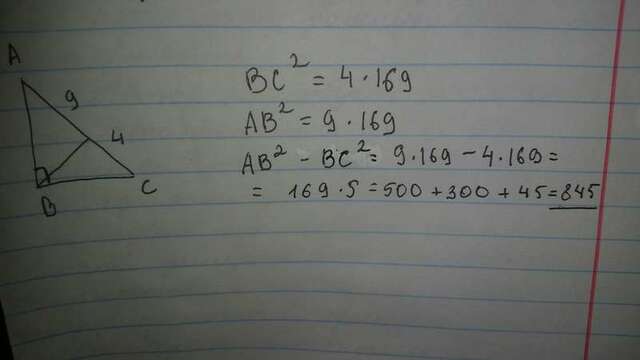 A
9
4
B
C
BC² = 4·169
AB² = 9·169
AB² - BC² = 9·169 - 4·169 =
= 169·5 = 500 + 300 + 45 = 845